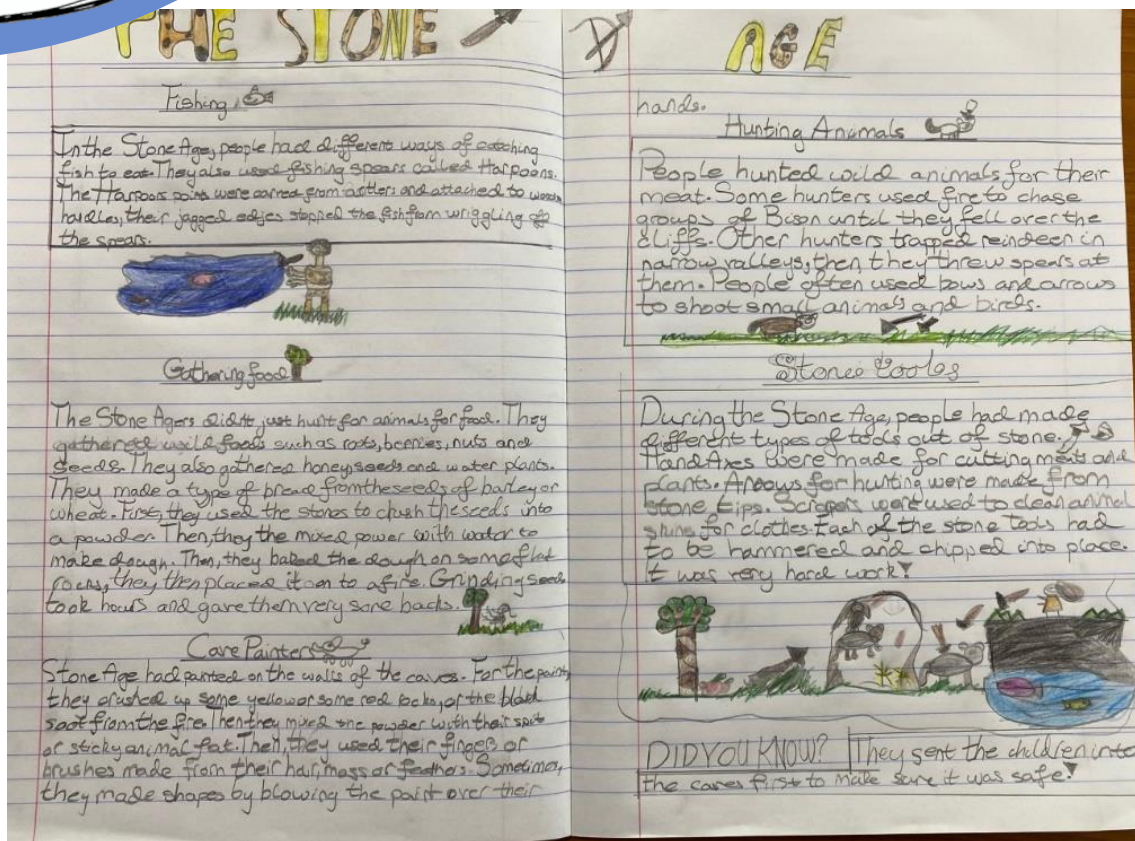 THE STONE AGE
Fishing
In the Stone Age, people had different ways of catching
fish to eat. They also used fishing spears called Harpoons.
The Harpoons points were carved from antlers and attached to wooden
handles, their jagged edjes stopped the fish from wriggling off
the spears.
Gathering food
The Stone Agers didn't just hunt for animals for food. They
gathered wild foods such as roots, berries, nuts and
seeds. They also gathered honey, seeds and water plants.
They made a type of bread from the seeds of barley or
wheat. First, they used the stones to chush the seeds into
a powder. Then, they the mixed power with water to
make dough. Then, they baked the dough on some flat
rocks, they then placed it on to a fire. Grinding seeds
took hours and gave them very sore backs.
Cave Painters
Stone Age had painted on the walls of the caves. For the paint,
they crushed up some yellow or some red rocks, or the black
soot from the fire. Then they mixed the powder with their spit
or sticky animal fat. Then, they used their fingers or
brushes made from their hair, moss or feathers. Sometimes,
they made shapes by blowing the paint over their
hands.
Hunting Animals
People hunted wild animals for their
meat. Some hunters used fire to chase
groups of Bison until they fell over the
cliffs. Other hunters trapped reindeer in
narrow valleys, then they threw spears at
them. People often used bows and arrows
to shoot small animals and birds.
Stone tooles
During the Stone Age, people had made
different types of tools out of stone.
Hand Axes were made for cutting meats and
plants. Arrows for hunting were made from
stone tips. Scrapers were used to clean animal
skins for clothes. Each of the stone tools had
to be hammered and chipped into place.
It was very hard work!
DID YOU KNOW? They sent the children into
the caves first to make sure it was safe!